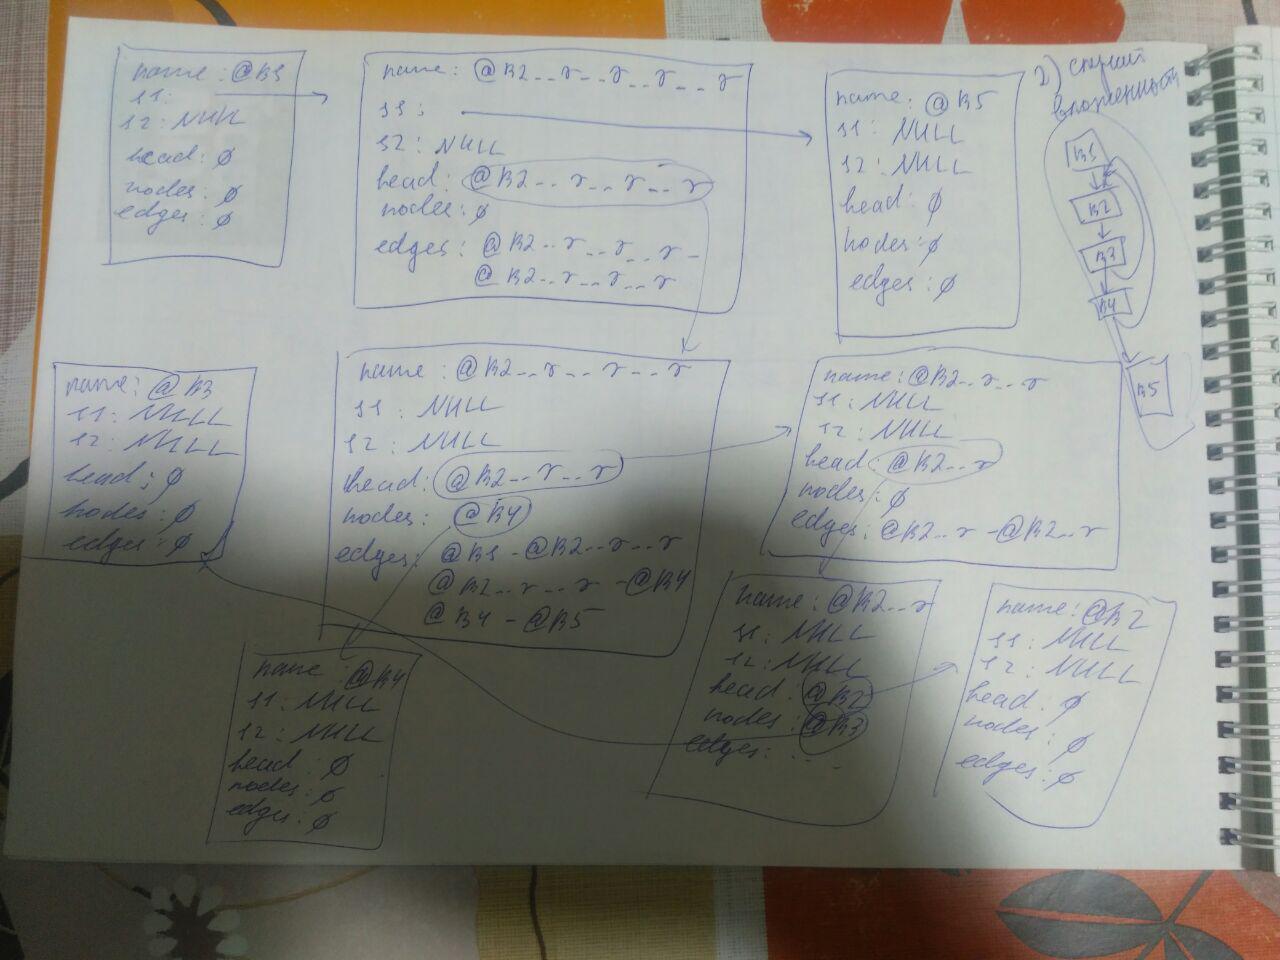 name: @B1
s1:
s2: NULL
head: ∅
nodes: ∅
edges: ∅
name: @B2..r..r..r..r
s1:
s2: NULL
head: @B2..r..r..r
nodes: ∅
edges: @B2..r..r..r -
@B2..r..r..r
name: @B5
s1: NULL
s2: NULL
head: ∅
nodes: ∅
edges: ∅
2)
вложенность
B1
B2
B3
B4
B5
name: @B3
s1: NULL
s2: NULL
head: ∅
nodes: ∅
edges: ∅
name: @B2..r..r..r
s1: NULL
s2: NULL
head: @B2..r..r
nodes: @B4
edges: @B1 - @B2..r..r
@B2..r..r - @B4
@B4 - @B5
name: @B2..r..r
s1: NULL
s2: NULL
head: @B2..r
nodes: ∅
edges: @B2..r - @B2..r
name: @B4
s1: NULL
s2: NULL
head: ∅
nodes: ∅
edges: ∅
name: @B2..r
s1: NULL
s2: NULL
head: @B2
nodes: @B3
edges: ...
name: @B2
s1: NULL
s2: NULL
head: ∅
nodes: ∅
edges: ∅